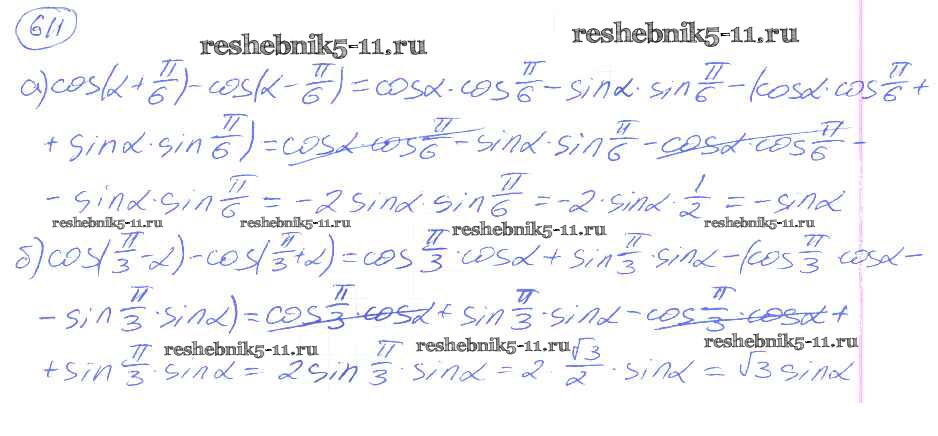 611
reshebnik5-11.ru reshebnik5-11.ru
а) cos(α + π/6) - cos(α - π/6) = cosα · cos π/6 - sinα · sin π/6 - (cosα · cos π/6 +
+ sinα · sin π/6) = cosα · cos π/6 - sinα · sin π/6 - cosα · cos π/6 -
- sinα · sin π/6 = -2 sinα · sin π/6 = -2 · sinα · 1/2 = - sinα
reshebnik5-11.ru reshebnik5-11.ru reshebnik5-11.ru reshebnik5-11.ru
б) cos(π/3 - α) - cos(π/3 + α) = cos π/3 · cosα + sin π/3 · sinα - (cos π/3 cosα -
- sin π/3 · sinα) = cos π/3 · cosα + sin π/3 · sinα - cos π/3 · cosα +
reshebnik5-11.ru reshebnik5-11.ru reshebnik5-11.ru
+ sin π/3 · sinα = 2 sin π/3 · sinα = 2 · √3/2 · sinα = √3 sinα